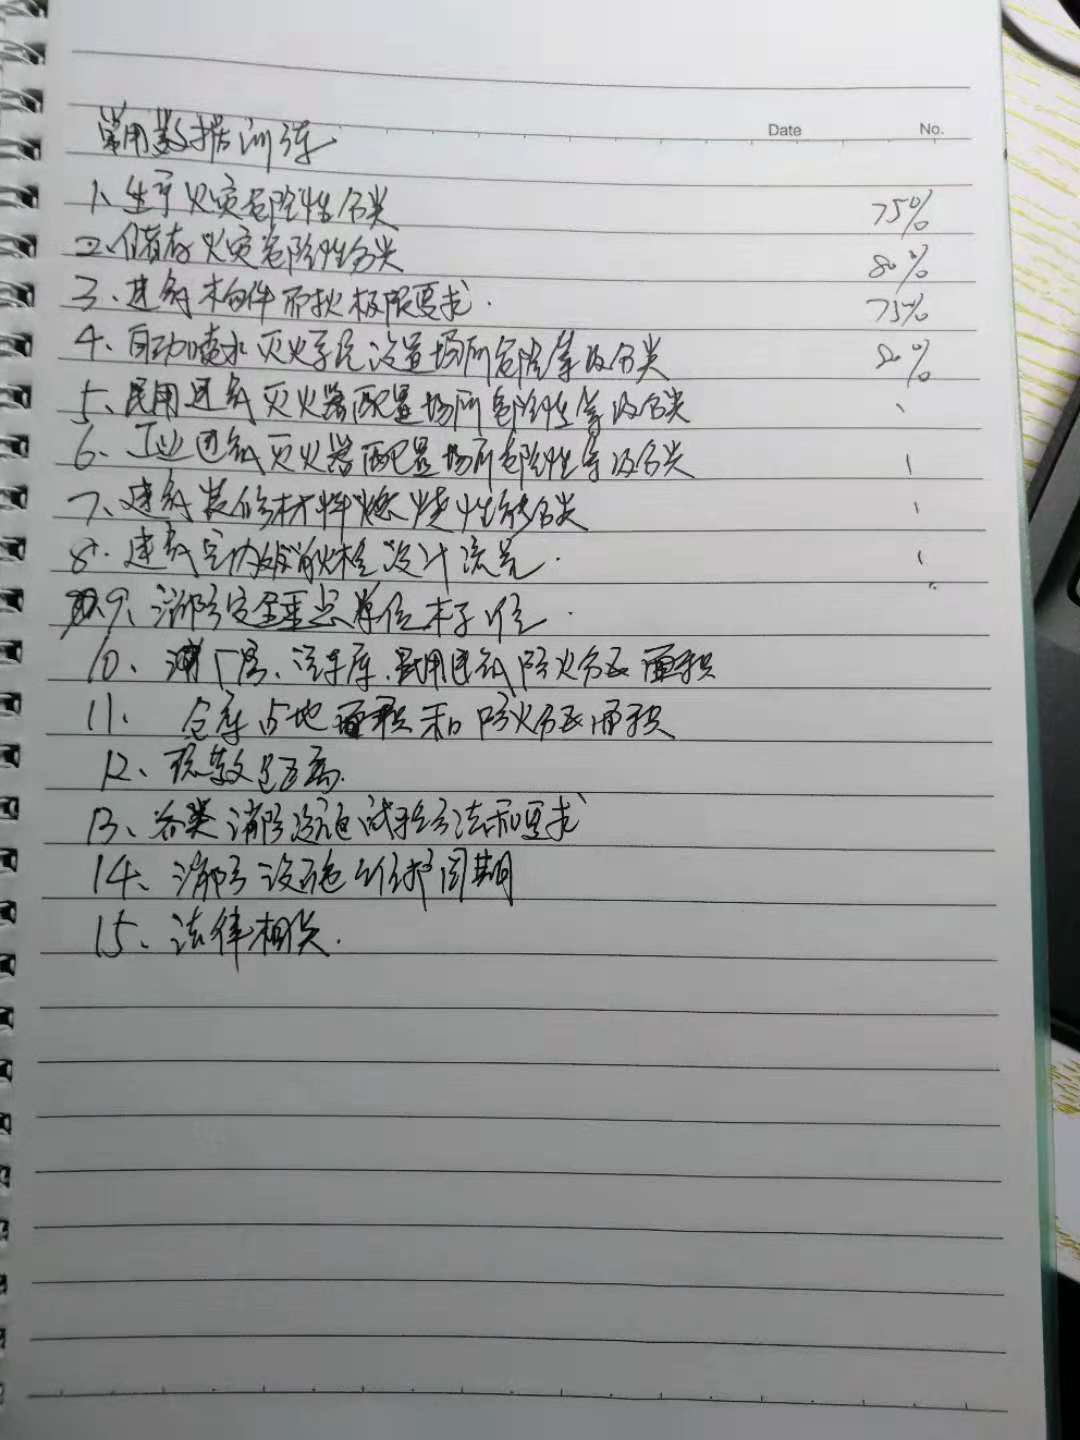 Date No.
常用数据训练
1、生产火灾危险性分类 75%
2、储存火灾危险性分类 80%
3、建筑构件耐火极限要求. 75%
4、自动喷水灭火系统设置场所危险等级分类 80%
5、民用建筑灭火器配置场所危险性等级分类
6、工业建筑灭火器配置场所危险性等级分类
7、建筑装修材料燃烧性能分类
8、建筑室内外消火栓设计流量.
9、消防安全重点单位标准.
10、厂房、汽车库、民用建筑防火分区面积
11、仓库占地面积和防火分区面积
12、疏散距离.
13、各类消防设施试验方法和要求
14、消防设施维护周期
15、法律相关.